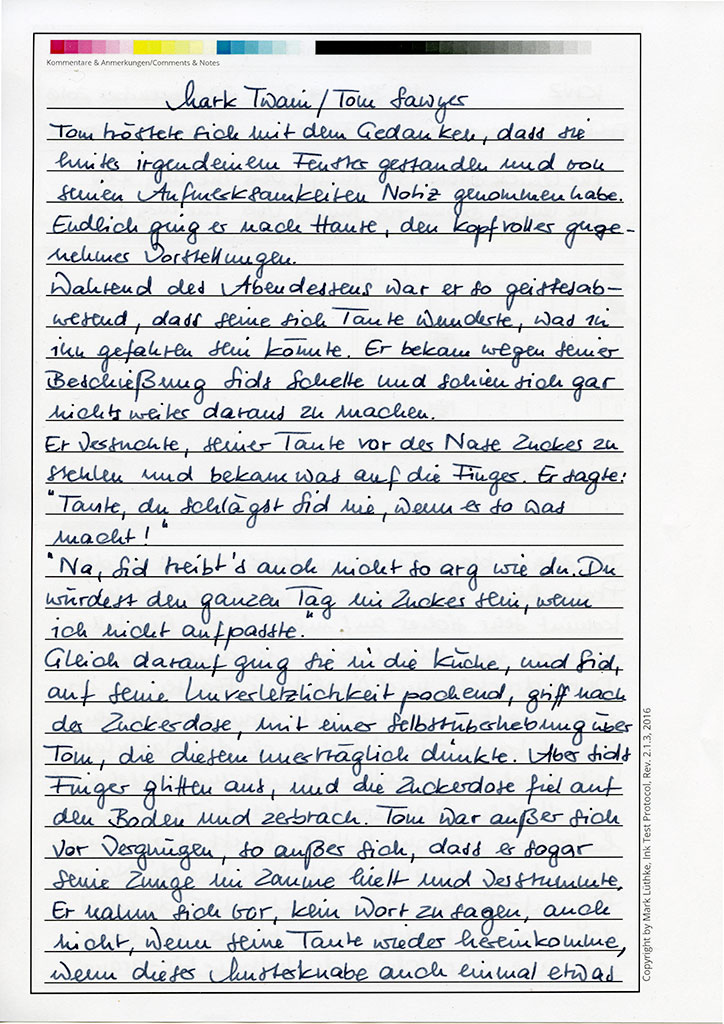 Kommentare & Anmerkungen/Comments & Notes
Mark Twain / Tom Sawyer
Tom tröstete sich mit dem Gedanken, dass sie
hinter irgendeinem Fenster gestanden und von
seinen Aufmerksamkeiten Notiz genommen habe.
Endlich ging er nach Hause, den Kopf voller ange-
nehmer Vorstellungen.
Während des Abendessens war er so geistesab-
wesend, dass seine sich Tante wunderte, was in
ihn gefahren sein könnte. Er bekam wegen seiner
Beschießung Sids Schelte und schien sich gar
nichts weiter daraus zu machen.
Er versuchte, seiner Tante vor der Nase Zucker zu
stehlen und bekam was auf die Finger. Er sagte:
"Tante, du schlägst Sid nie, wenn er so was
macht!"
"Na, Sid treibt's auch nicht so arg wie du. Du
würdest den ganzen Tag im Zucker sein, wenn
ich nicht aufpasste."
Gleich darauf ging sie in die Küche, und Sid,
auf seine Unverletzlichkeit pochend, griff nach
der Zuckerdose, mit einer Selbstüberhebung über
Tom, die diesem unerträglich dünkte. Aber Sids
Finger glitten aus, und die Zuckerdose fiel auf
den Boden und zerbrach. Tom war außer sich
vor Vergnügen, so außer sich, dass er sogar
seine Zunge im Zaume hielt und verstummte.
Er nahm sich vor, kein Wort zu sagen, auch
nicht, wenn seine Tante wieder hereinkomme,
wenn dieser Musterknabe auch einmal etwas
Copyright by Mark Lüthke, Ink Test Protocol, Rev. 2.1.3, 2016